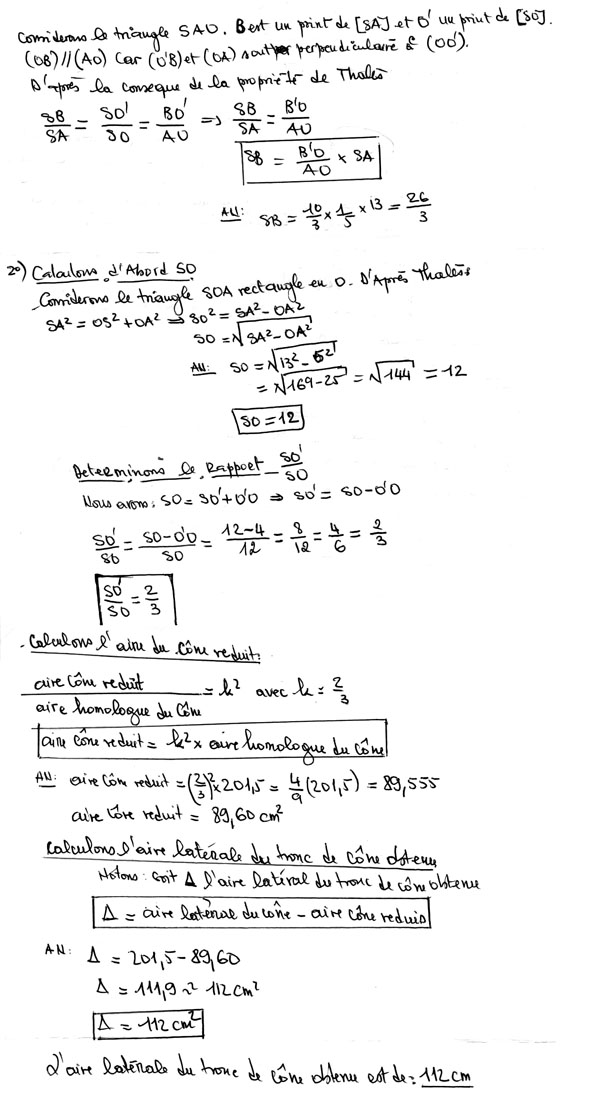 Considerons le triangle SAO. B est un point de [SA] et O' un point de [SO].
(OB)//(AO) Car (O'B) et (OA) sont perpendiculaire à (OO').
D'après la conseque de la propriété de Thalès
SB/SA = SO'/SO = BO'/AO => SB/SA = B'O/AO
SB = B'O/AO × SA
AN: SB = 10/3 × 1/5 × 13 = 26/3
2°) Calculons d'Abord SO
Considerons le triangle SOA rectangle en O. D'Après Thalès
SA² = OS² + OA² => SO² = SA² - OA²
SO = √SA² - OA²
AN: SO = √13² - 5²
= √169-25 = √144 = 12
SO = 12
Determinons le Rapport SO'/SO
Nous avons: SO = SO'+O'O => SO' = SO - O'O
SO'/SO = SO-O'O/SO = 12-4/12 = 8/12 = 4/6 = 2/3
SO'/SO = 2/3
- Calculons l'aire du cône reduit:
aire Cône reduit/aire homologue du Cône = k² avec k = 2/3
aire cône reduit = k² × aire homologue du cône
AN: aire Cône reduit = (2/3)² × 201,5 = 4/9 (201,5) = 89,555
aire Cône reduit = 89,60 cm²
Calculons l'aire latérale du tronc de cône obtenu
Notons: soit Δ l'aire latéral du tronc de cône obtenue
Δ = aire latéral du cône - aire cône reduis
AN: Δ = 201,5 - 89,60
Δ = 111,9 ≃ 112 cm²
Δ = 112 cm²
L'aire latérale du tronc de cône obtenu est de: 112 cm